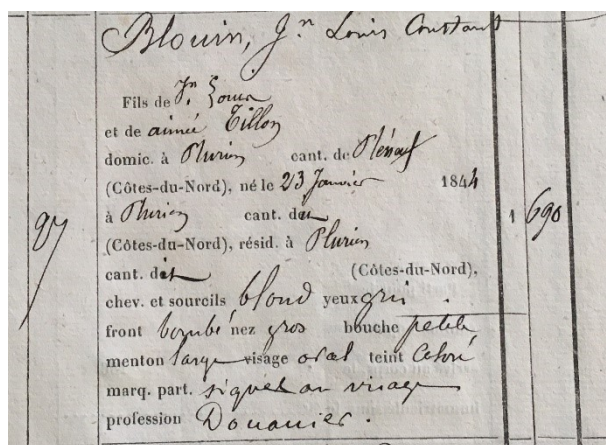 Blouin, Jn Louis Constant
Fils de Jn Louis
et de aimée Tillon
domic. à Plurien cant. de Pléneuf
(Côtes-du-Nord), né le 23 Janvier 1844
à Plurien cant. dt
(Côtes-du-Nord), résid. à Plurien
cant. dt (Côtes-du-Nord),
chev. et sourcils blond yeux gris
front bombé nez gros bouche petite
menton large visage oval teint coloré
marq. part. au visage
profession Douanier.
87
1 690